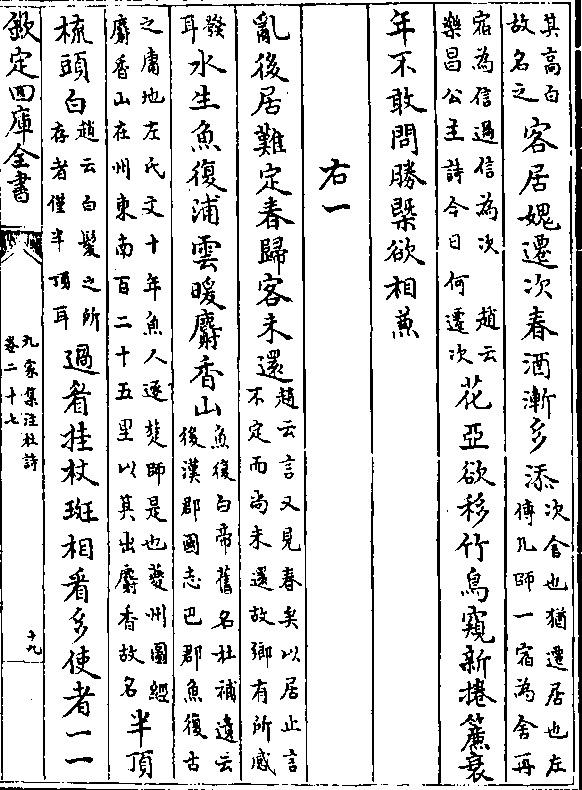 其高白
故名之
客居媿遷次春酒漸多添
次舍也猶遷居也左
傳凡師一宿為舍再
宿為信過信為次　趙云
樂昌公主詩今日何遷次
花亞欲移竹鳥窺新捲簾衰
年不敢問勝槩欲相兼
右一
亂後居難定春歸客未還
趙云言又見春矣以居止言
不定而尚未還故鄉有所感
發
耳
水生魚復浦雲暖麝香山
魚復白帝舊名杜補遺云
後漢郡國志巴郡魚復古
之庸地左氏文十年魚人逐楚師是也夔州圖經
麝香山在州東南百二十五里以其出麝香故名
半頂
梳頭白
趙云白髮之所
存者僅半頂耳
過眉拄杖斑相看多使者一一
欽定四庫全書
九家集注杜詩
卷二十七
十九